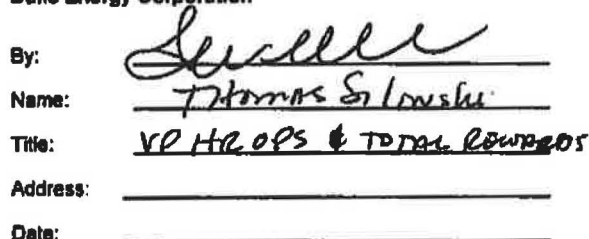 Duke Energy Corporation
By:
Name: Thomas Silowski
Title: VP HR OPS & TOTAL REWARDS
Address:
Date: